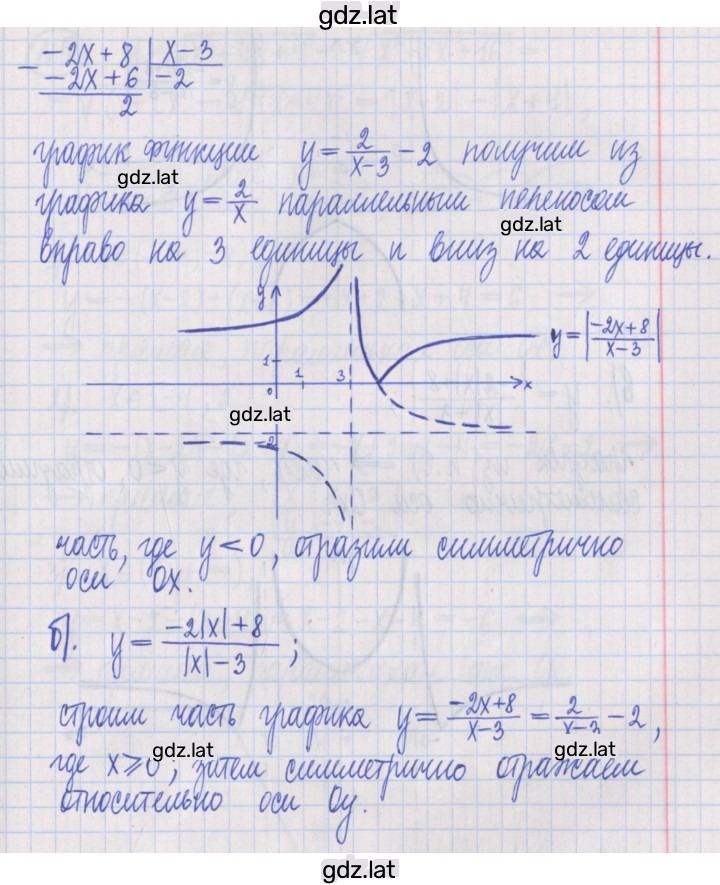 gdz.lat
-2x+8 | x-3
-
-2x+6 | -2
2
график функции y = 2/(x-3) - 2 получим из
gdz.lat
графика y = 2/x параллельным переносом
gdz.lat
вправо на 3 единицы и вниз на 2 единицы.
y
y = |(-2x+8)/(x-3)|
1
0 1 3 x
gdz.lat
-2
часть, где y < 0, отразили симметрично
оси Ox.
б). y = (-2|x|+8)/(|x|-3) ;
строим часть графика y = (-2x+8)/(x-3) = 2/(x-3) - 2,
gdz.lat gdz.lat
где x ⩾ 0 ; затем симметрично отражаем
относительно оси Oy.
gdz.lat